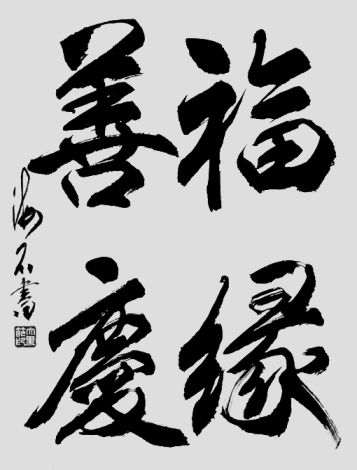 福緣
善慶
海石書